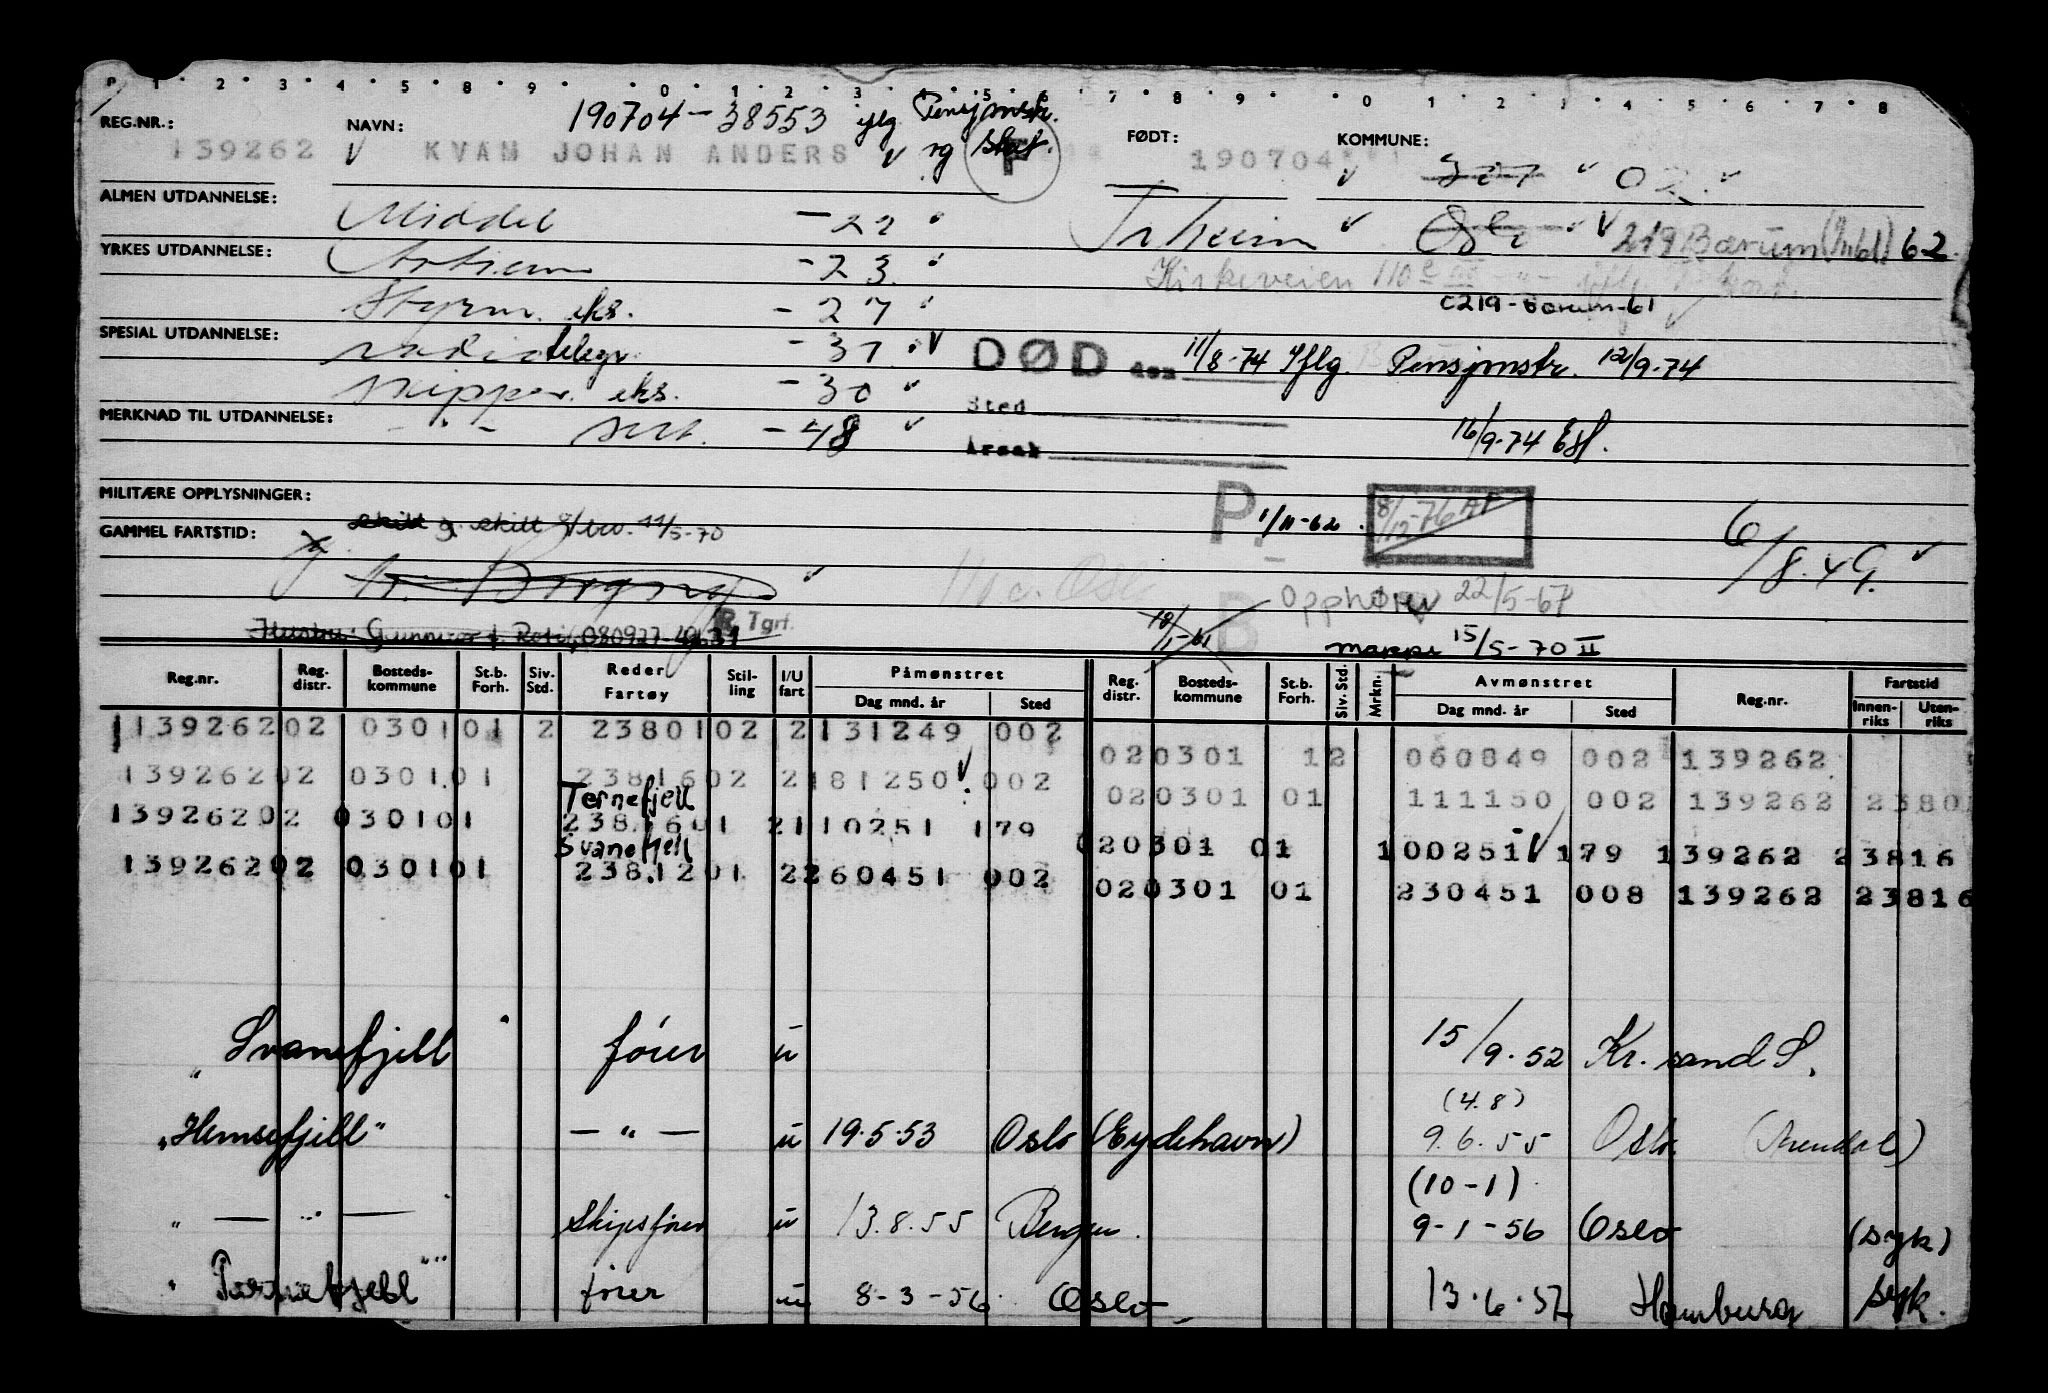 P 1 2 3 4 5 8 9 0 1 2 3 4 5 6 7 8 9 0 1 2 3 4 5 6 7 8
190704-38553 iflg. Pensjonstr.
REG.NR.: NAVN: FØDT: KOMMUNE:
139262 KVAM JOHAN ANDERS rg F 190704 02
ALMEN UTDANNELSE: Middel - 22 Tr.heim Oslo 219 Bærum (Innbl) 62.
YRKES UTDANNELSE: Artium - 23 Kirkeveien 110
Styrm. eks. - 27 C219-Bærum-61
SPESIAL UTDANNELSE: radiotelegr - 31 DØD den 11/8-74 iflg. Pensjonstr. 12/9-74
skipper eks. - 30 Sted
MERKNAD TIL UTDANNELSE: - " - sert. - 48 Årsak 16/9-74
MILITÆRE OPPLYSNINGER: P. 1/11-62. 8/12-76
GAMMEL FARTSTID: skilt g. skilt 11/5-70 6/8.49
Opphører 22/5-67
Hustru: Gunnvor f. 080927 R. Tgrf. B mappe 15/5-70 II
Reg.nr. Reg. distr. Bosteds-kommune St.b. Forh. Siv. Std. Reder Fartøy Stil-ling I/U fart Påmønstret Dag mnd. år Sted Reg. distr. Bosteds-kommune St.b. Forh. Siv. Std. Mrkn. Avmønstret Dag mnd. år Sted Reg.nr. Fartstid Innen-riks Uten-riks
139262 02 0301 01 2 23801 02 2 131249 002
020301 12 060849 002 139262
139262 02 0301 01 23816 02 2 181250 002
Ternefjell 020301 01 111150 002 139262 2380
139262 02 0301 01 23816 01 2 110251 179
Svanefjell 020301 01 100251 179 139262 23816
139262 02 0301 01 23812 01 2 260451 002
020301 01 230451 008 139262 23816
"Svanefjell fører u 15/9.52 Kr.sand S.
(4.8)
"Hemsefjell" - " - u 19.5.53 Oslo (Eydehavn) 9.6.55 Oslo (Arendal)
(10-1)
" - " - Skipsfører u 13.8.55 Bergen. 9-1-56 Oslo (syk)
" fører u 8-3-56 Oslo 13.6.57 Hamburg syk.